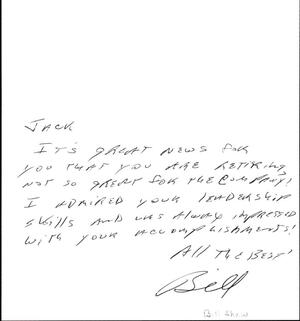 JACK
IT'S GREAT NEWS FOR
YOU THAT YOU ARE RETIRING,
NOT SO GREAT FOR THE COMPANY!
I ADMIRED YOUR LEADERSHIP
SKILLS AND WAS ALWAYS IMPRESSED
WITH YOUR ACCOMPLISHMENTS!
ALL THE BEST!
Bill
Bill Shaw